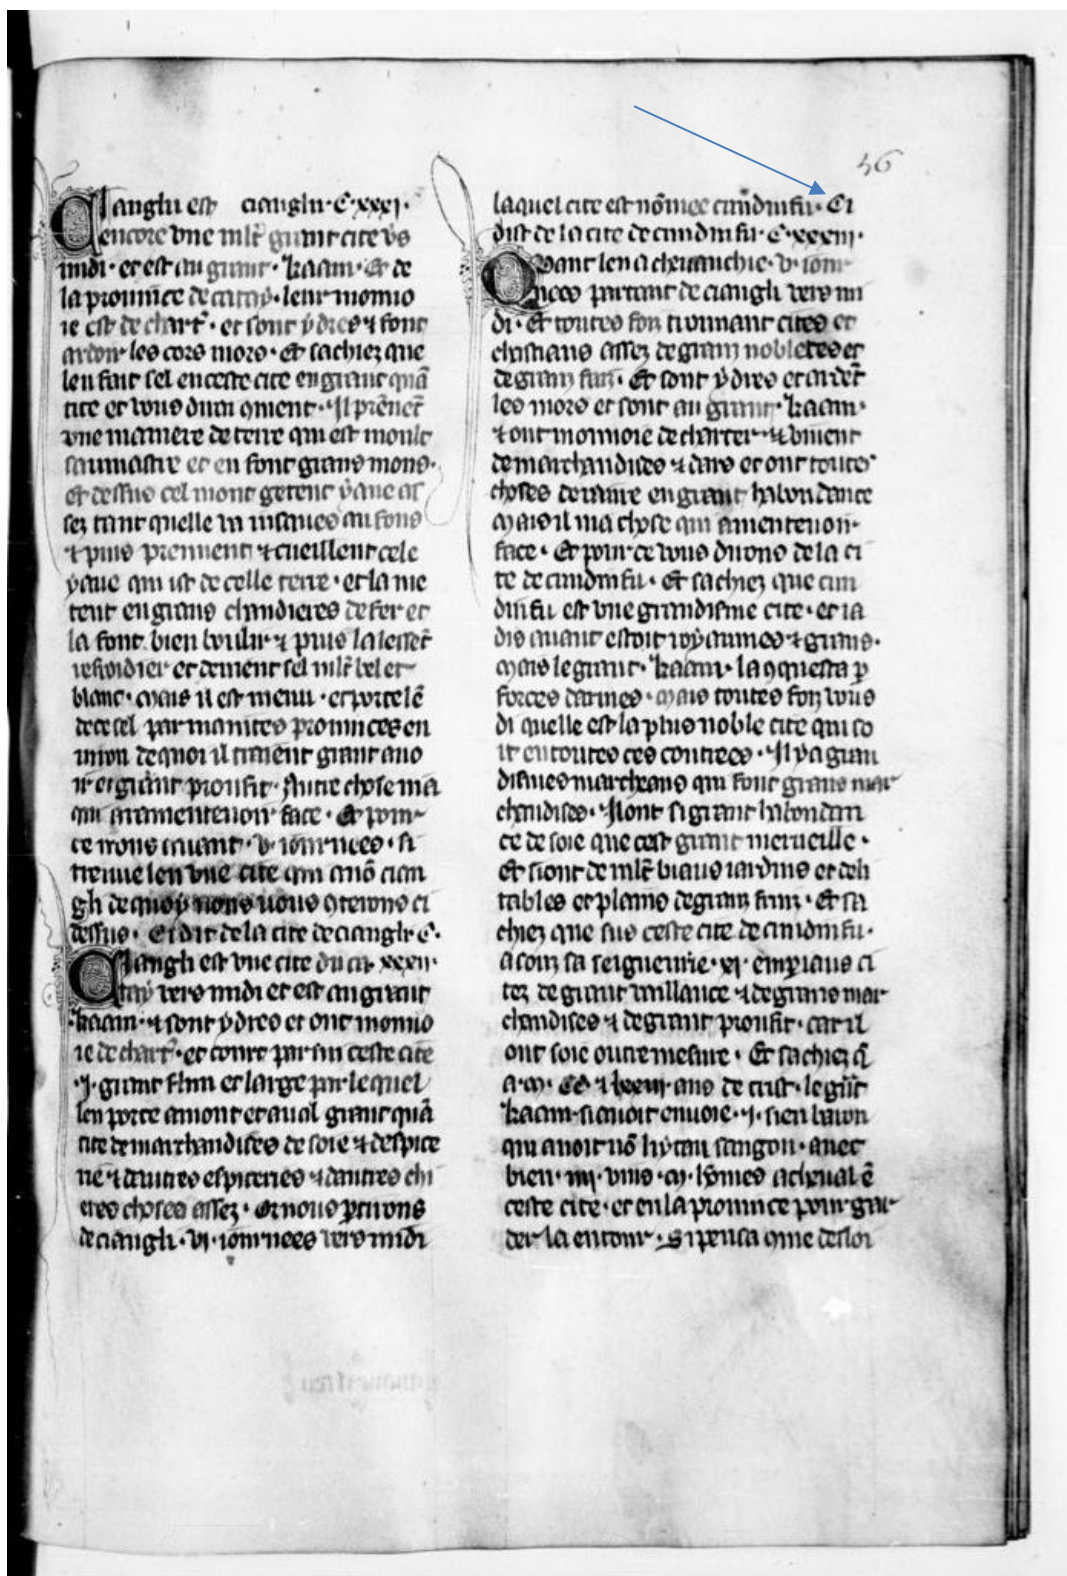 46
Cianglu est cianglu · C · xxxj ·
encore vne mlt grant cite vs
midi · et est au grant · kaam · Et de
la prouince de catay · leur monno
ie est de chart᷑ · et sont ydres ⁊ font
ardoir les cors mors · Et sachiez que
len fait sel en ceste cite en grant quã
tite et vous dirai 9ment · Il prẽnẽt
vne maniere de terre qui est moult
saumastre et en font grans mons ·
et dessus cel mont getent yaue as
sez tant quelle va iusques au fons
⁊ puis prennent ⁊ cueillent cele
yaue qui ist de celle terre · et la me
tent en grans chaudieres de fer et
la font bien boulir ⁊ puis la lessẽt
refroidier et deuient sel mlt bel et
blanc · mais il est menu · et porte lẽ
de ce sel par maintes prouinces en
uiron de quoi il traiẽnt grant auo
ir et grant proufit · Autre chose ni a
qui a ramenteuoir face · Et pour
ce irons auant · v · iournees · si
treuue len vne cite qui a nõ cian
gli de quoy nous vous 9terons ci
dessus · Ci dit de la cite de ciangli C ·
Ciangli est vne cite du ca xxxij ·
tay vers midi et est au grant
kaam · ⁊ sont ydres et ont monno
ie de chart᷑ · et court par mi ceste cite
· j · grant flun et large par le quel
len porte amont et aual grant quã
tite de marchandises de soie ⁊ despice
rie ⁊ dautres espiceries ⁊ dautres chi
eres choses assez · Or nous ꝑtirons
de ciangli · vj · iournees vers midi
laquel cite est nõmee cundinfu · Ci
dist de la cite de cundinfu · C · xxxiij ·
Quant len a cheuauchie · v · iour
nees partant de ciangli vers mi
di · Et toutes fois trouuant cites et
chastiaus assez de grans nobletes et
de grans fais · Et sont ydres et ardẽt
les mors et sont au grant · kaam ·
⁊ ont monnoie de charter · ⁊ viuent
de marchandises ⁊ dars et ont toutes
choses de viure en grant habondance
mais il ni a chose qui a mentenoir
face · Et pour ce vous dirons de la ci
te de cundinfu · Et sachiez que cun
dinfu est vne grandisme cite · et ia
dis auant estoit royaumes ⁊ grans ·
mais le grant · kaam · la 9questa ꝑ
forces darmes · mais toutes fois vous
di quelle est la plus noble cite qui so
it en toutes ces contrees · Il y a gran
dismes marcheans qui font grans mar
chandises · Il ont si grant habondan
ce de soie que cest grant merueille ·
et si ont de mlt biaus iardins et deli
tables et plains de grans fruis · Et sa
chiez que sus ceste cite de cundinfu ·
a souz sa seigneurie · xj · empriaus ci
tez de grant vaillance ⁊ de grans mar
chandises ⁊ de grant proufit · car il
ont soie outre mesure · Et sachiez q̃
a · m · CC · ⁊ lxxiij · ans de crist · le grãt
kaam · si auoit enuoie · j · sien baron
qui auoit nõ lıytan sangon · auec
bien · iiij · vins · m · hõmes a cheual ẽ
ceste cite · et en la prouince pour gar
der la entour · Si pensa 9me desloi